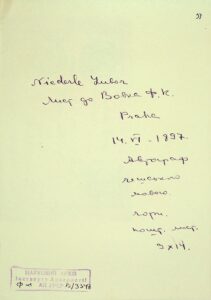 Niederle Lubor
лист до Вовка Ф.К.
Praha
14. VI - 1897.
Автограф
чеською
мовою.
чорн.
пошт. лист.
9х14.
НАУКОВИЙ АРХІВ
Інституту Археології